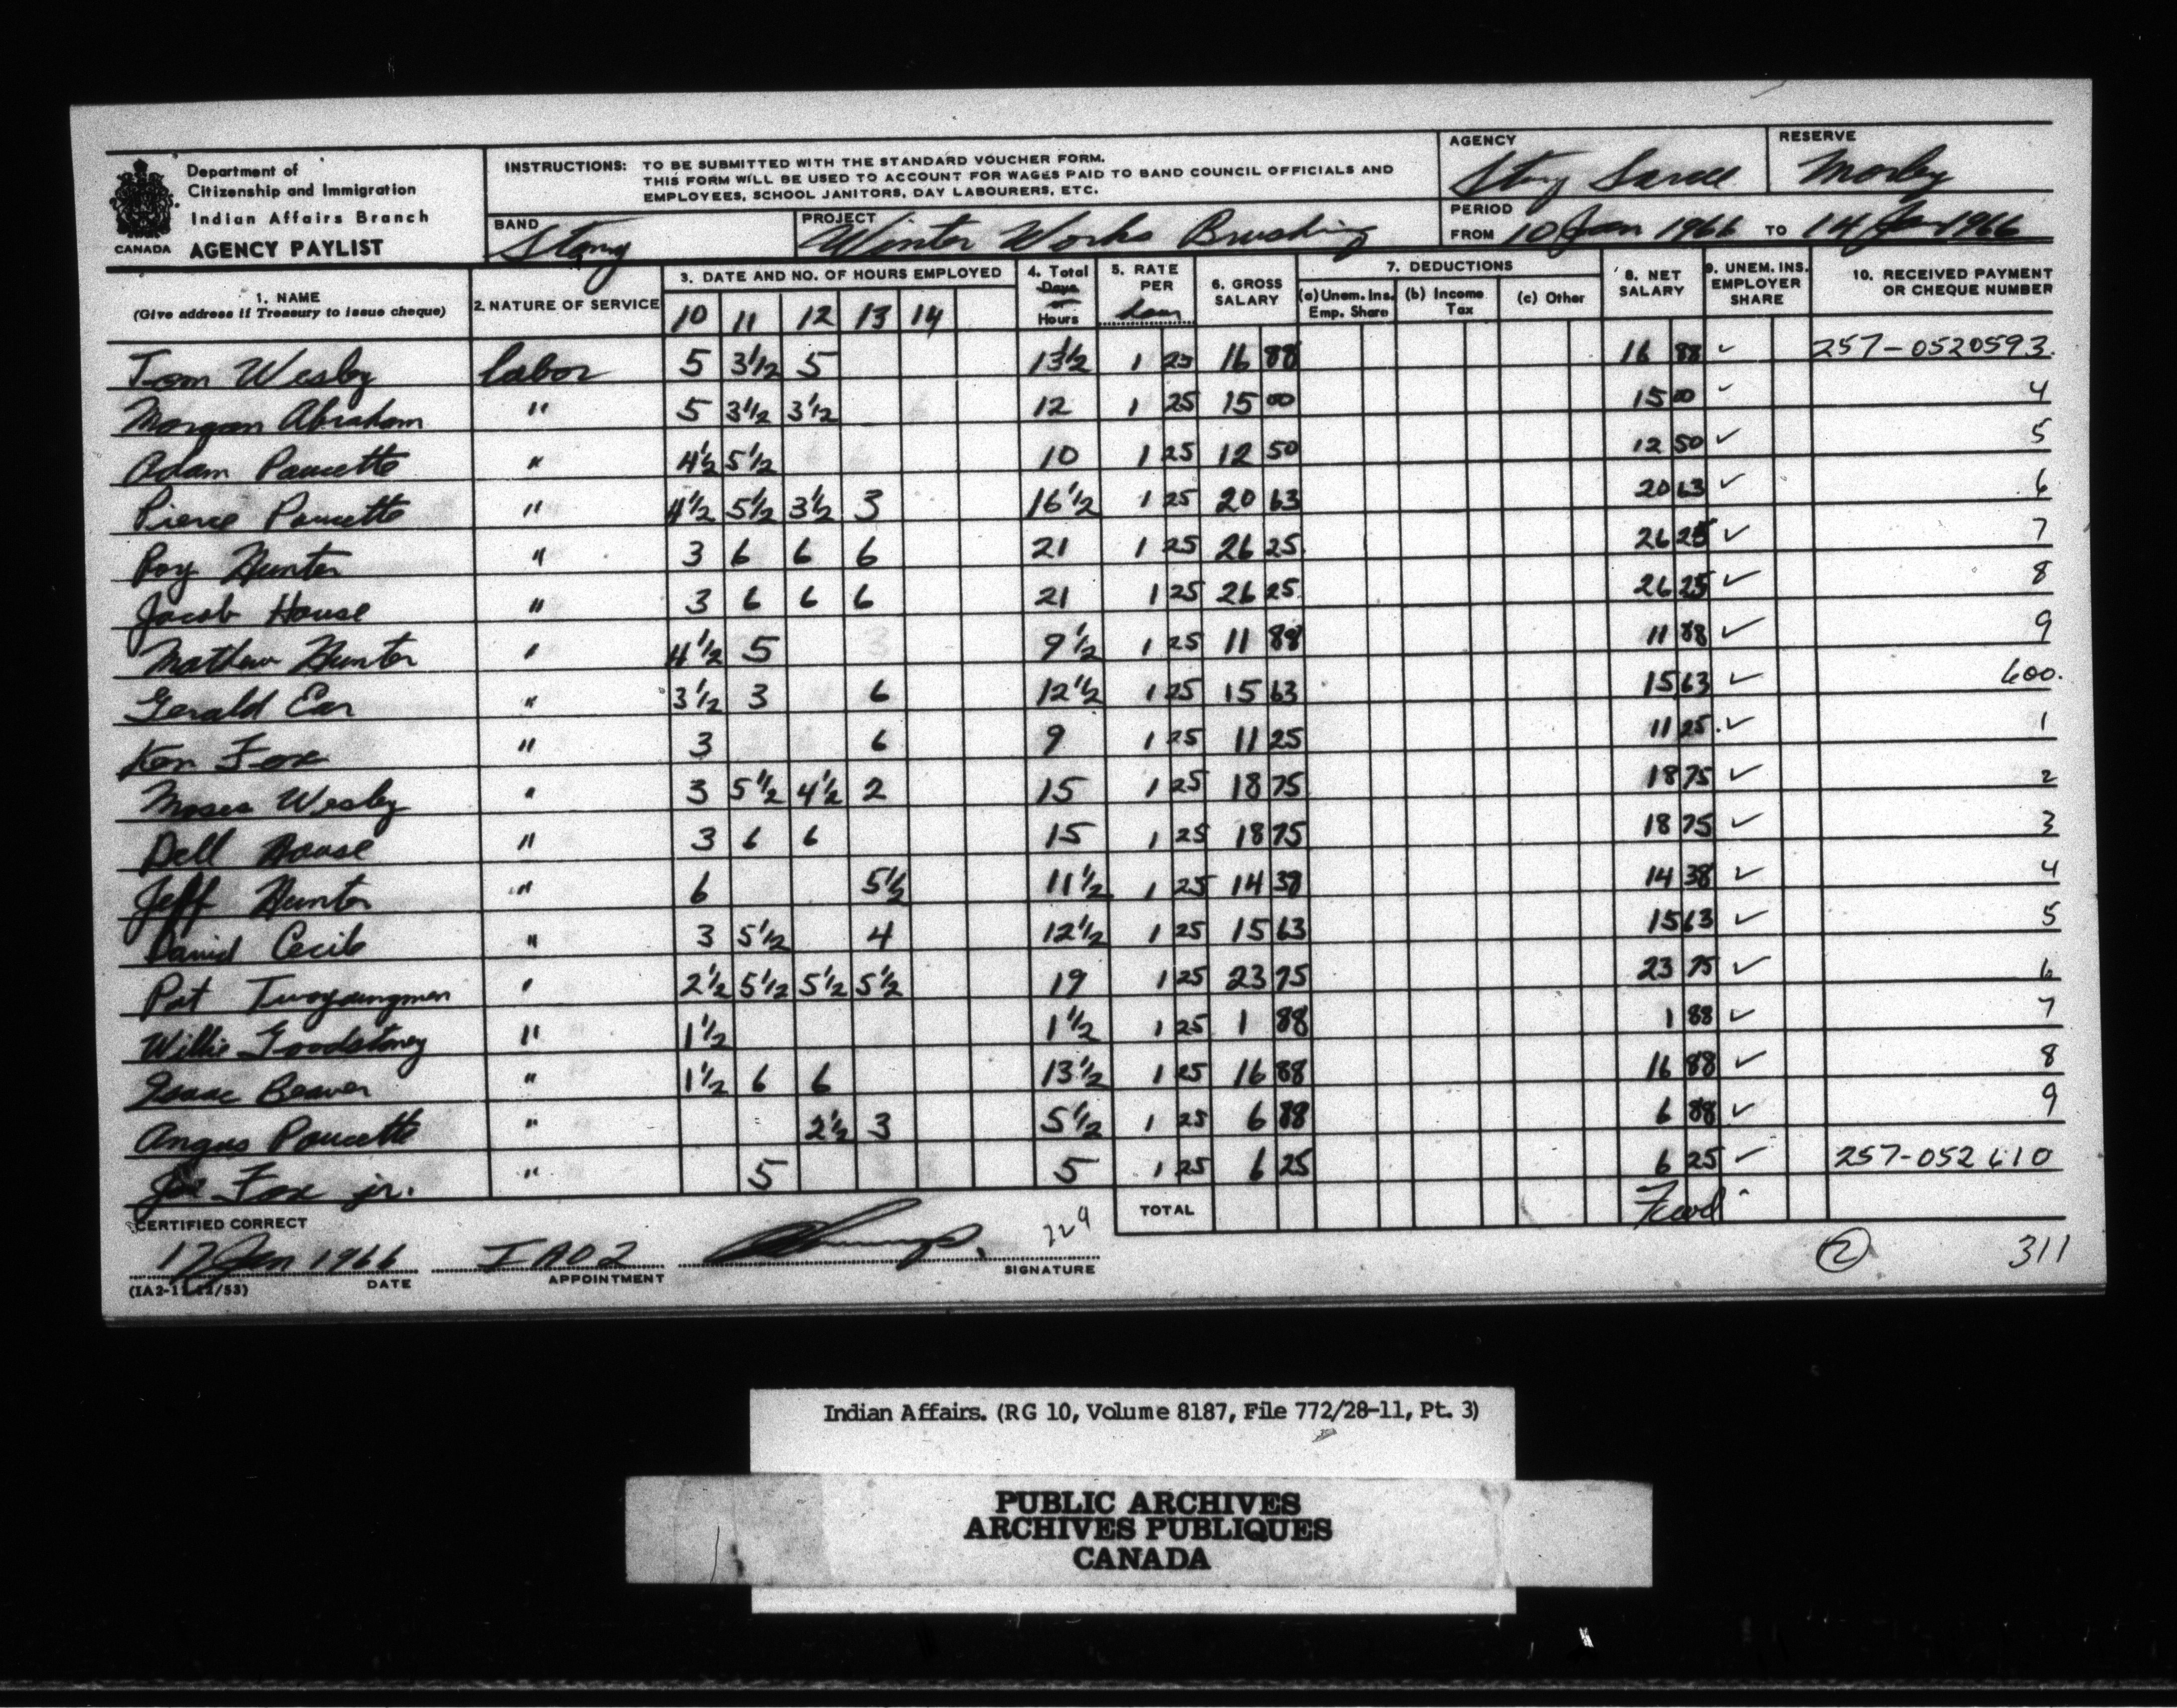 Department of
Citizenship and Immigration
Indian Affairs Branch
CANADA AGENCY PAYLIST
INSTRUCTIONS: TO BE SUBMITTED WITH THE STANDARD VOUCHER FORM.
THIS FORM WILL BE USED TO ACCOUNT FOR WAGES PAID TO BAND COUNCIL OFFICIALS AND
EMPLOYEES, SCHOOL JANITORS, DAY LABOURERS, ETC.
AGENCY Stony Sarcee
RESERVE Morley
BAND Stony
PROJECT Winter Works Brushing
PERIOD FROM 10 Jan 1966 TO 14 Jan 1966
1. NAME
(Give address if Treasury to issue cheque)
2. NATURE OF SERVICE
3. DATE AND NO. OF HOURS EMPLOYED
10 11 12 13 14
4. Total Days or Hours
5. RATE PER hour
6. GROSS SALARY
7. DEDUCTIONS
(a) Unem. Ins. Emp. Share
(b) Income Tax
(c) Other
8. NET SALARY
9. UNEM. INS. EMPLOYER SHARE
10. RECEIVED PAYMENT OR CHEQUE NUMBER
Tom Wesley labor 5 3½ 5 13½ 1 25 16 88 16 88 ✓ 257-0520593.
Morgan Abraham " 5 3½ 3½ 12 1 25 15 00 15 00 ✓ 4
Adam Poucette " 4½ 5½ 10 1 25 12 50 12 50 ✓ 5
Pierce Poucette " 4½ 5½ 3½ 3 16½ 1 25 20 63 20 63 ✓ 6
Roy Hunter " 3 6 6 6 21 1 25 26 25 26 25 ✓ 7
Jacob House " 3 6 6 6 21 1 25 26 25 26 25 ✓ 8
Mathew Hunter " 4½ 5 9½ 1 25 11 88 11 88 ✓ 9
Gerald Ear " 3½ 3 6 12½ 1 25 15 63 15 63 ✓ 600.
Ken Fox " 3 6 9 1 25 11 25 11 25 ✓ 1
Moses Wesley " 3 5½ 4½ 2 15 1 25 18 75 18 75 ✓ 2
Dell House " 3 6 6 15 1 25 18 75 18 75 ✓ 3
Jeff Hunter " 6 5½ 11½ 1 25 14 38 14 38 ✓ 4
David Cecile " 3 5½ 4 12½ 1 25 15 63 15 63 ✓ 5
Pat Twoyoungmen " 2½ 5½ 5½ 5½ 19 1 25 23 75 23 75 ✓ 6
Willie Goodstoney " 1½ 1½ 1 25 1 88 1 88 ✓ 7
Isaac Beaver " 1½ 6 6 13½ 1 25 16 88 16 88 ✓ 8
Angus Poucette " 2½ 3 5½ 1 25 6 88 6 88 ✓ 9
Joe Fox jr. " 5 5 1 25 6 25 6 25 ✓ 257-052610
CERTIFIED CORRECT
TOTAL
17 Jan 1966 IAO2 229
DATE APPOINTMENT SIGNATURE
2 311
Indian Affairs. (RG 10, Volume 8187, File 772/28-11, Pt. 3)
PUBLIC ARCHIVES
ARCHIVES PUBLIQUES
CANADA